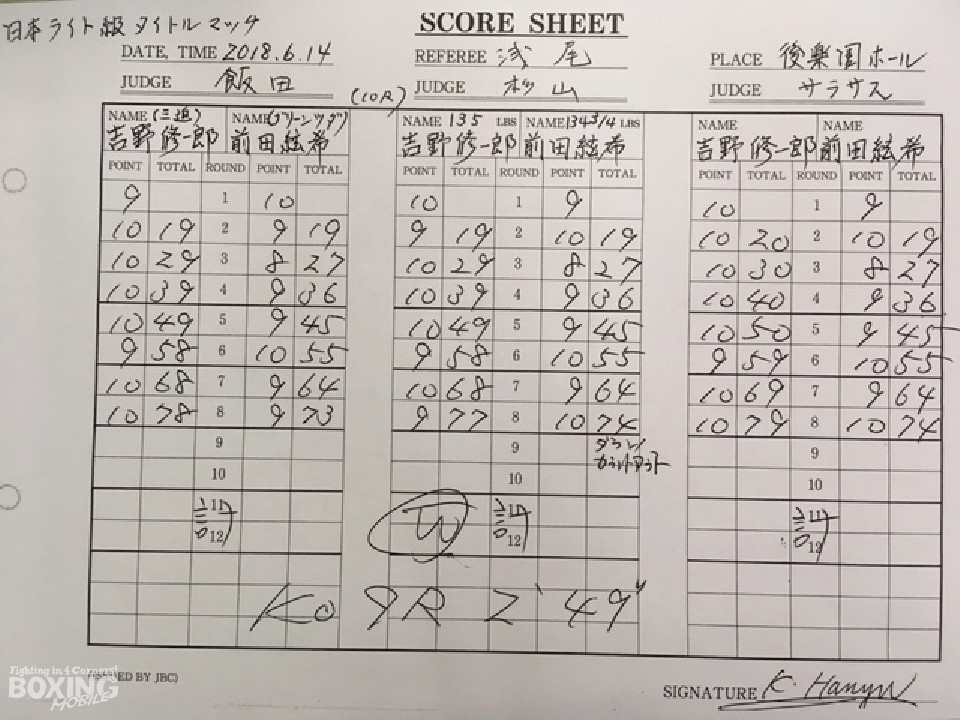 日本ライト級 タイトルマッチ
SCORE SHEET
DATE, TIME 2018.6.14 REFEREE 浅尾 PLACE 後楽園ホール
JUDGE 飯田 (10R) JUDGE 杉山 JUDGE サラサス
NAME (三迫) NAME (グリーンツダ) NAME 135 LBS NAME 134 3/4 LBS NAME NAME
吉野修一郎 前田絃希 吉野修一郎 前田絃希 吉野修一郎 前田絃希
POINT TOTAL ROUND POINT TOTAL POINT TOTAL ROUND POINT TOTAL POINT TOTAL ROUND POINT TOTAL
9 1 10 10 1 9 10 1 9
10 19 2 9 19 9 19 2 10 19 10 20 2 10 19
10 29 3 8 27 10 29 3 8 27 10 30 3 8 27
10 39 4 9 36 10 39 4 9 36 10 40 4 9 36
10 49 5 9 45 10 49 5 9 45 10 50 5 9 45
9 58 6 10 55 9 58 6 10 55 9 59 6 10 55
10 68 7 9 64 10 68 7 9 64 10 69 7 9 64
10 78 8 9 73 9 77 8 10 74 10 79 8 10 74
9 9 ダウン 9
カウントアウト
10 10 10
11 11 11
12 W 12 12
KO 9R 2' 49"
Fighting in 4 Corners!
BOXING MOBILE
ED BY JBC)
SIGNATURE K. Hanyu